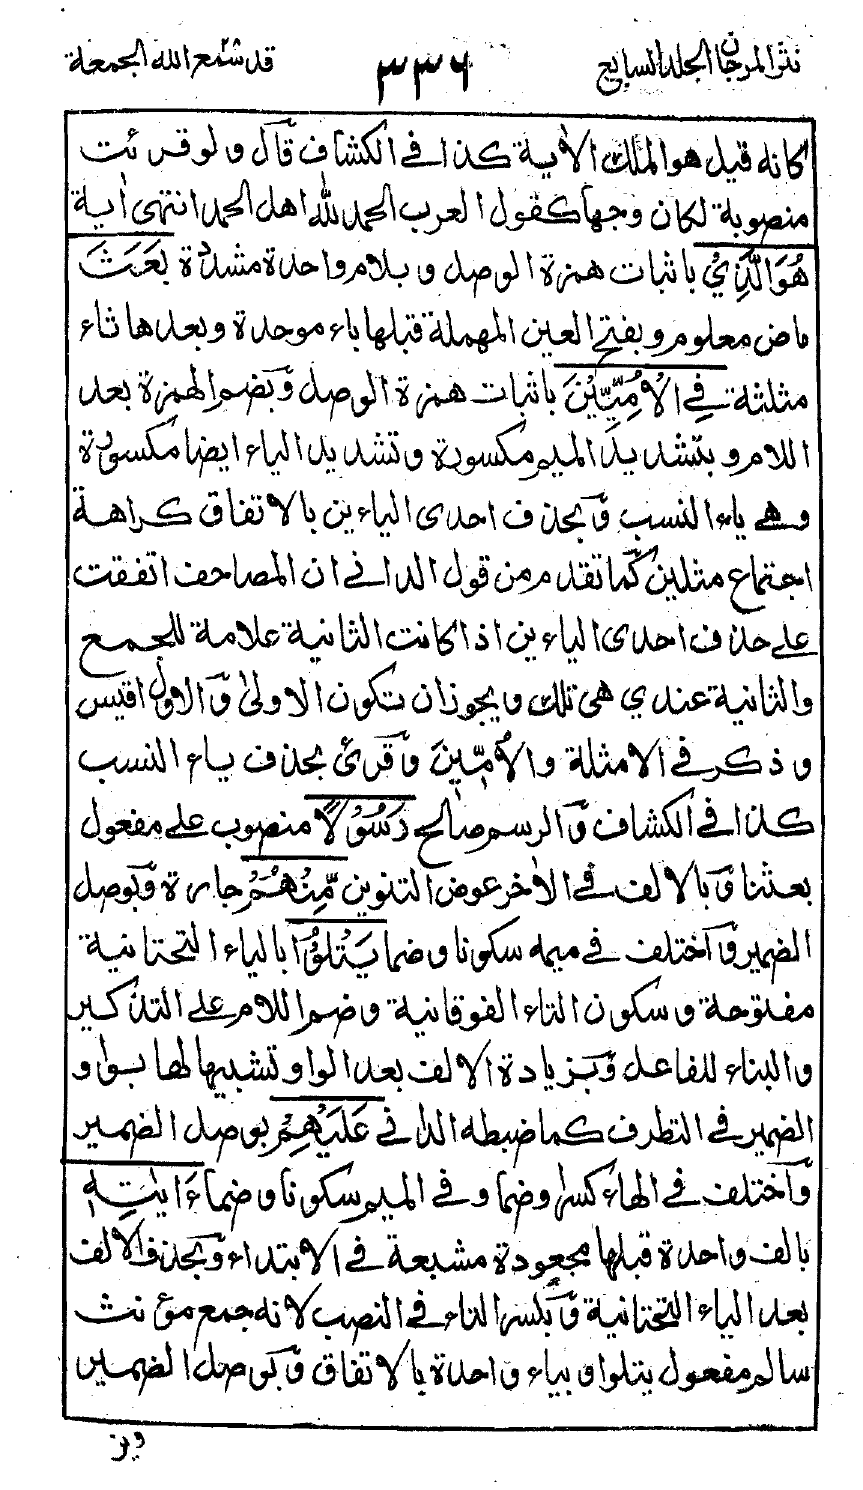 نثر المرجان الجلد السابع ٣٣٦ قد سمع الله الجمعة
كانه قيل هو الملك الاٰية كذا في الكشاف قال ولو قرئت
منصوبة لكان وجها كقول العرب الحمد لله اهل الحمد انتهى اٰية
هُوَ الَّذِيْ باثبات همزة الوصل وبلام واحدة مشددة بَعَثَ
ماض معلوم وبفتح العين المهملة قبلها باء موحدة وبعدها ثاء
مثلثة فِي الْاُمِّيّٖنَ باثبات همزة الوصل وبضم الهمزة بعد
اللام وبتشديد الميم مكسورة وتشديد الياء ايضا مكسورة
وهي ياء النسب وبحذف احدى الياءين بالاتفاق كراهة
اجتماع مثلين كما تقدم من قول الداني ان المصاحف اتفقت
على حذف احدى الياءين اذا كانت الثانية علامة للجمع
والثانية عندي هي تلك ويجوز ان تكون الاولى والاول اقيس
وذكر في الامثلة والاُمّيّنَ وقرئ بحذف ياء النسب
كذا في الكشاف والرسم صالح رَسُوْلًا منصوب على مفعول
بعثنا وبالالف في الاٰخر عوض التنوين مِّنْهُمْ جارة وبوصل
الضمير واختلف في ميمه سكونا وضما يَتْلُوْا بالياء التحتانية
مفتوحة وسكون التاء الفوقانية وضم اللام على التذكير
والبناء للفاعل وبزيادة الالف بعد الواو تشبيها لها بواو
الضمير في التطرف كما ضبطه الداني عَلَيْهِمْ بوصل الضمير
واختلف في الهاء كسرا وضما وفي الميم سكونا وضما ءَايٰتِهٖ
بالف واحدة قبلها مجعودة مشبعة في الابتداء وبحذف الالف
بعد الياء التحتانية وبكسر التاء في النصب لانه جمع مؤنث
سالم مفعول يتلوا وبياء واحدة بالاتفاق وبوصل الضمير